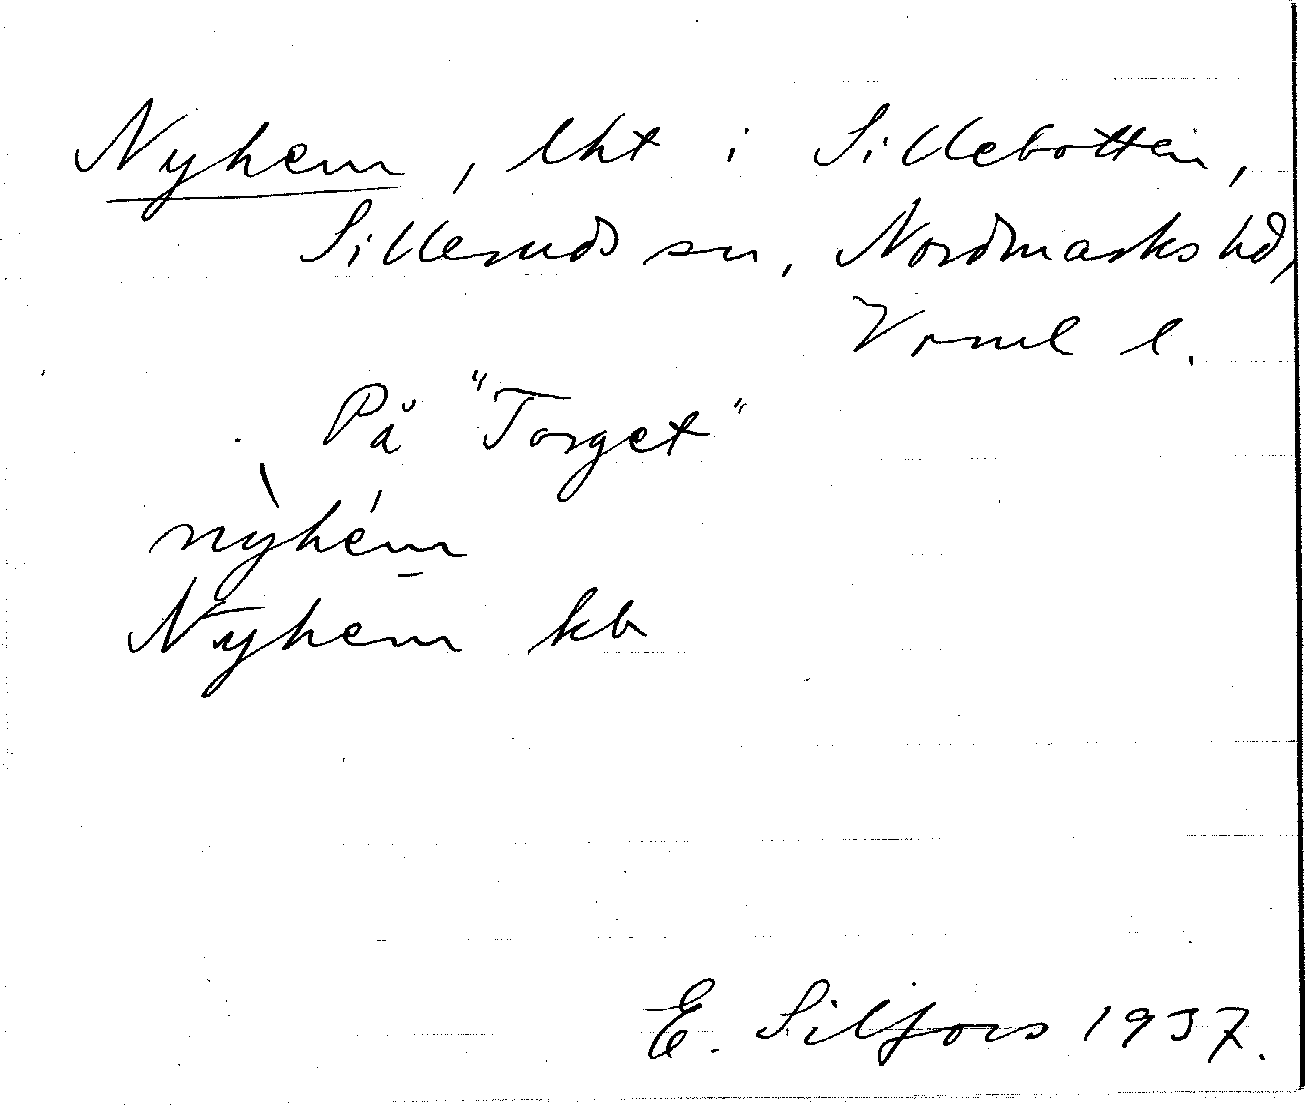 Nyhem, lht i Sillebotten,
Silleruds sn, Nordmarks hd,
Vrml l.
På "Torget"
nỳhém
Nyhem kb
E. Silfors 1937.